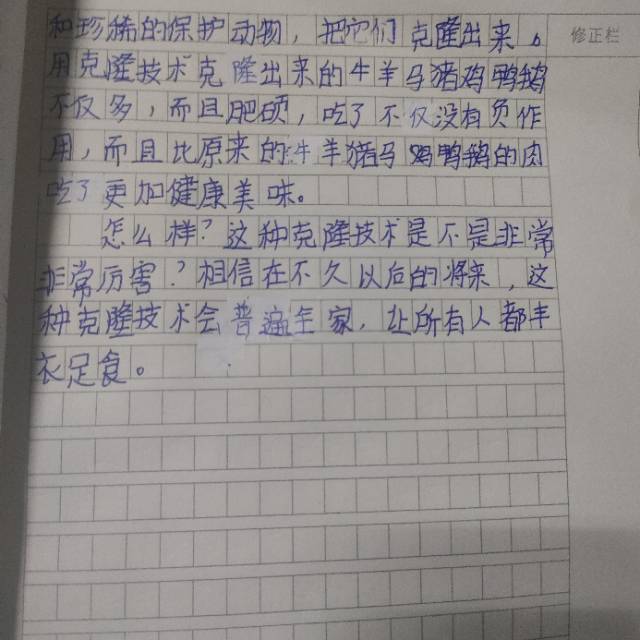 和珍稀的保护动物，把它们克隆出来。
修正栏
用克隆技术克隆出来的牛羊马猪鸡鸭鹅
不仅多，而且肥硕，吃了不仅没有负作
用，而且比原来的牛羊猪马鸡鸭鹅的肉
吃了更加健康美味。
怎么样？这种克隆技术是不是非常
非常厉害？相信在不久以后的将来，这
种克隆技术会普遍全家，让所有人都丰
衣足食。